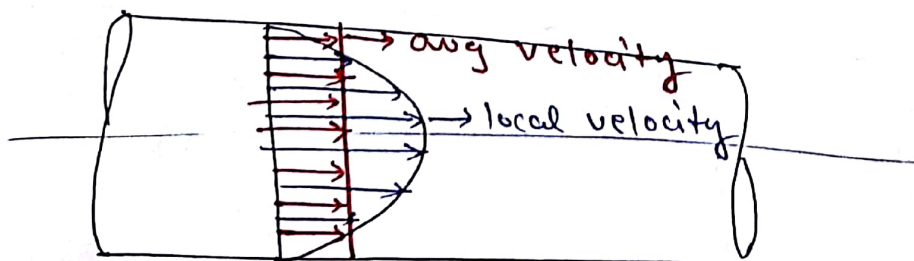 avg velocity
local velocity